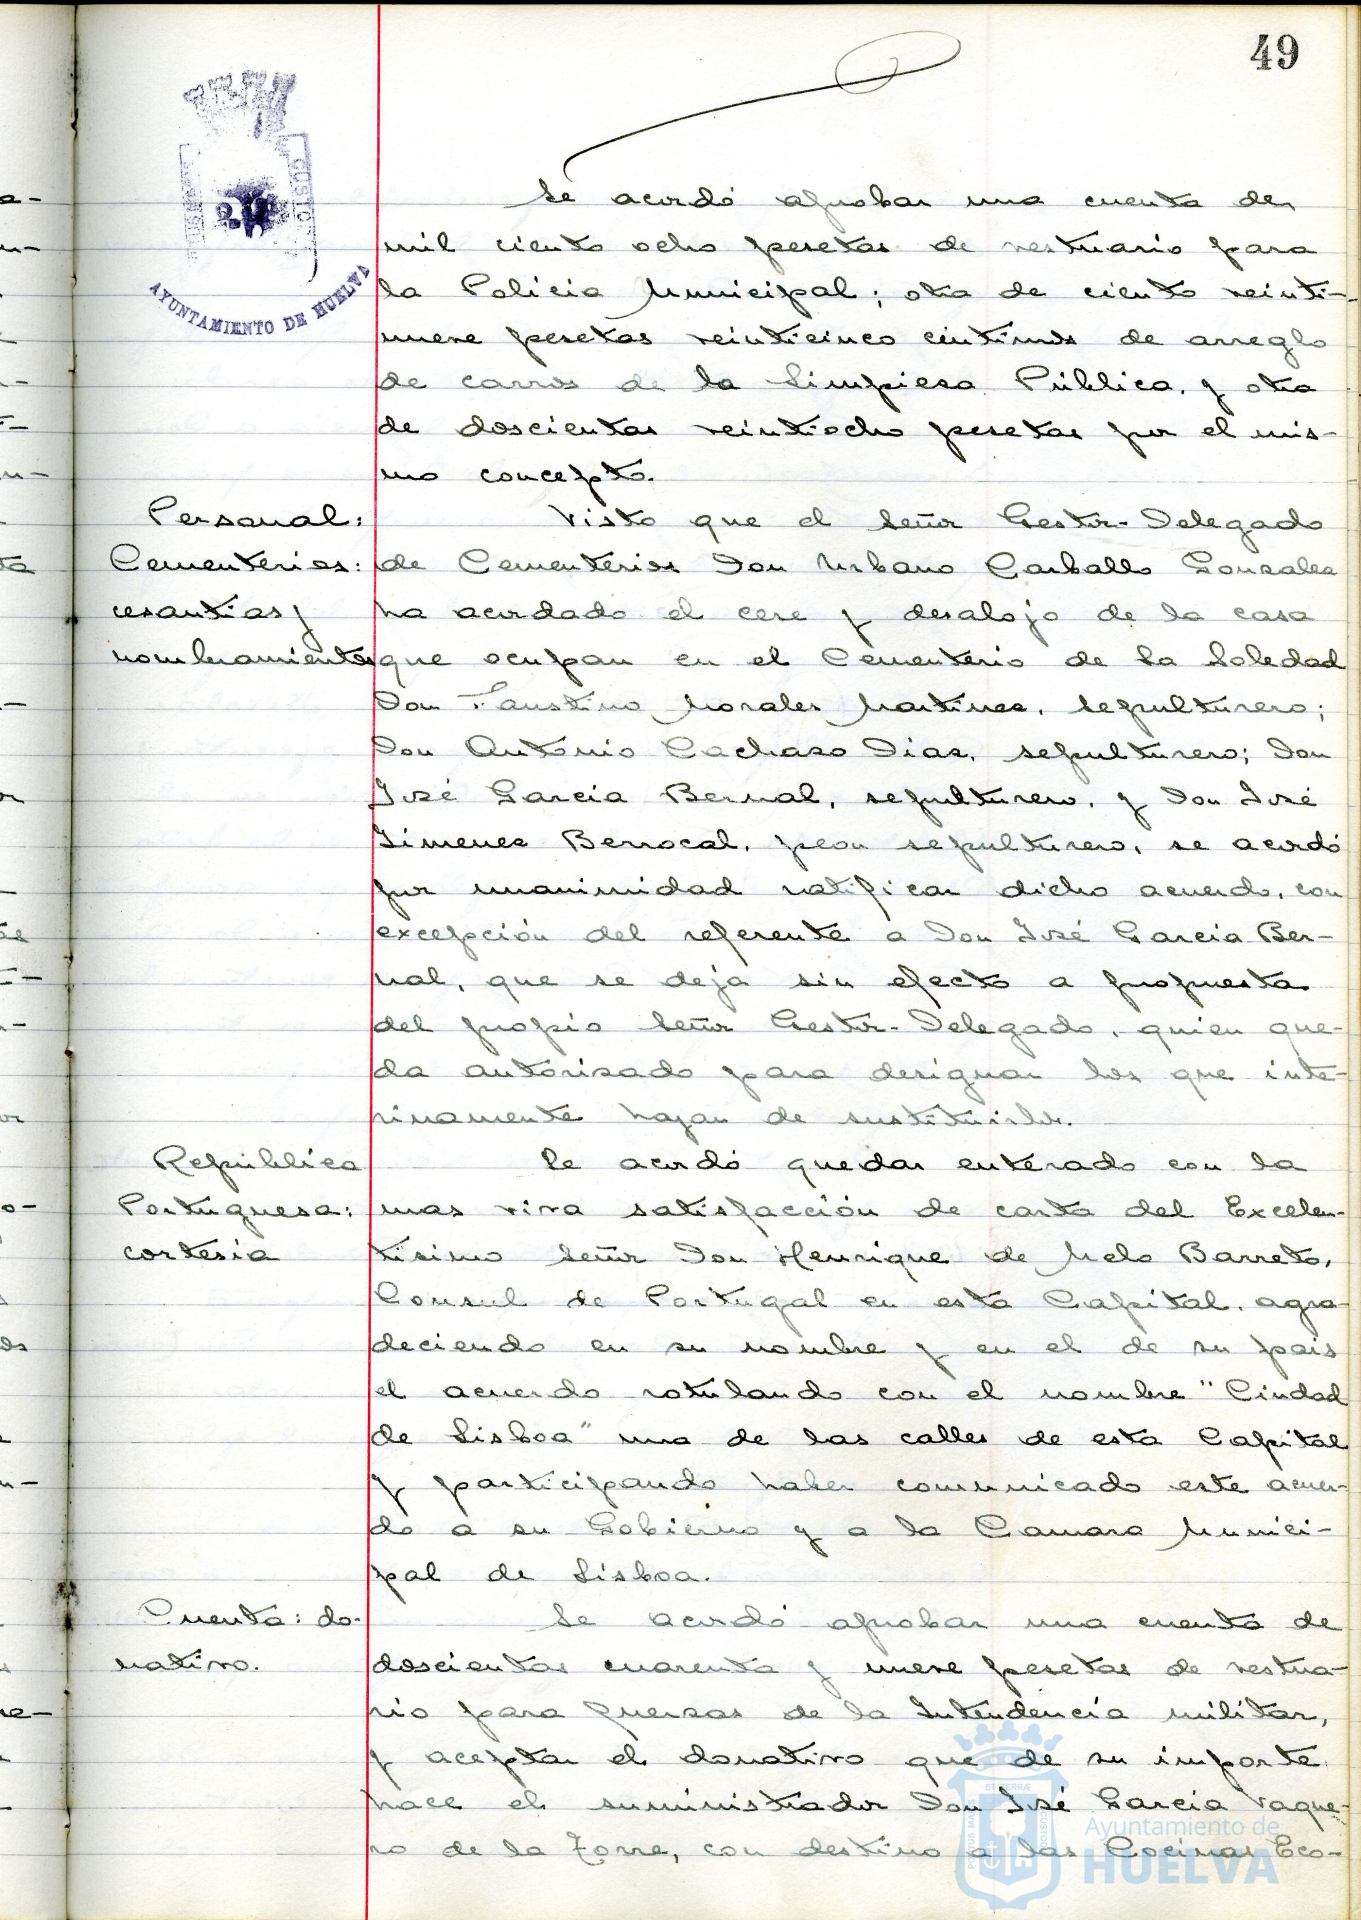 49
AYUNTAMIENTO DE HUELVA
Se acordó aprobar una cuenta de
mil ciento ocho pesetas de vestuario para
la Policia Municipal; otra de ciento veinti-
nueve pesetas veinticinco céntimos de arreglo
de carros de la Limpiesa Pública, y otra
de doscientas veintiocho pesetas por el mis-
mo concepto.
Personal:
Cementerios:
cesantias y
nombramientos
Visto que el Señor Gestor-Delegado
de Cementerios Don Urbano Carballo Gonsales
ha acordado el cese y desalojo de la casa
que ocupan en el Cementerio de la Soledad
Don Faustino Morales Martines, sepulturero;
Don Antonio Cachaso Dias, sepulturero; Don
José Garcia Bernal, sepulturero, y Don José
Jimenes Berrocal, peon sepulturero, se acordó
por unanimidad ratificar dicho acuerdo, con
excepción del referente a Don José Garcia Ber-
nal, que se deja sin efecto a propuesta
del propio Señor Gestor-Delegado, quien que-
da autorisado para designar los que inte-
rinamente hayan de sustituirlos.
República
Portuguesa:
cortesia
Se acordó quedar enterado con la
mas viva satisfacción de carta del Excelen-
tisimo Señor Don Henrique de Melo Barreto,
Consul de Portugal en esta Capital, agra-
deciendo en su nombre y en el de su pais
el acuerdo rotulando con el nombre "Ciudad
de Lisboa" una de las calles de esta Capital
y participando haber comunicado este acuer-
do a su Gobierno y a la Camara Munici-
pal de Lisboa.
Cuenta: do-
nativo.
Se acordó aprobar una cuenta de
doscientas cuarenta y nueve pesetas de vestua-
rio para fuersas de la Intendencia militar,
y aceptar el donativo que de su importe
hace el suministrador Don José Garcia Vaque-
ro de la Torre, con destino a las Cocinas Eco-
Ayuntamiento de
HUELVA